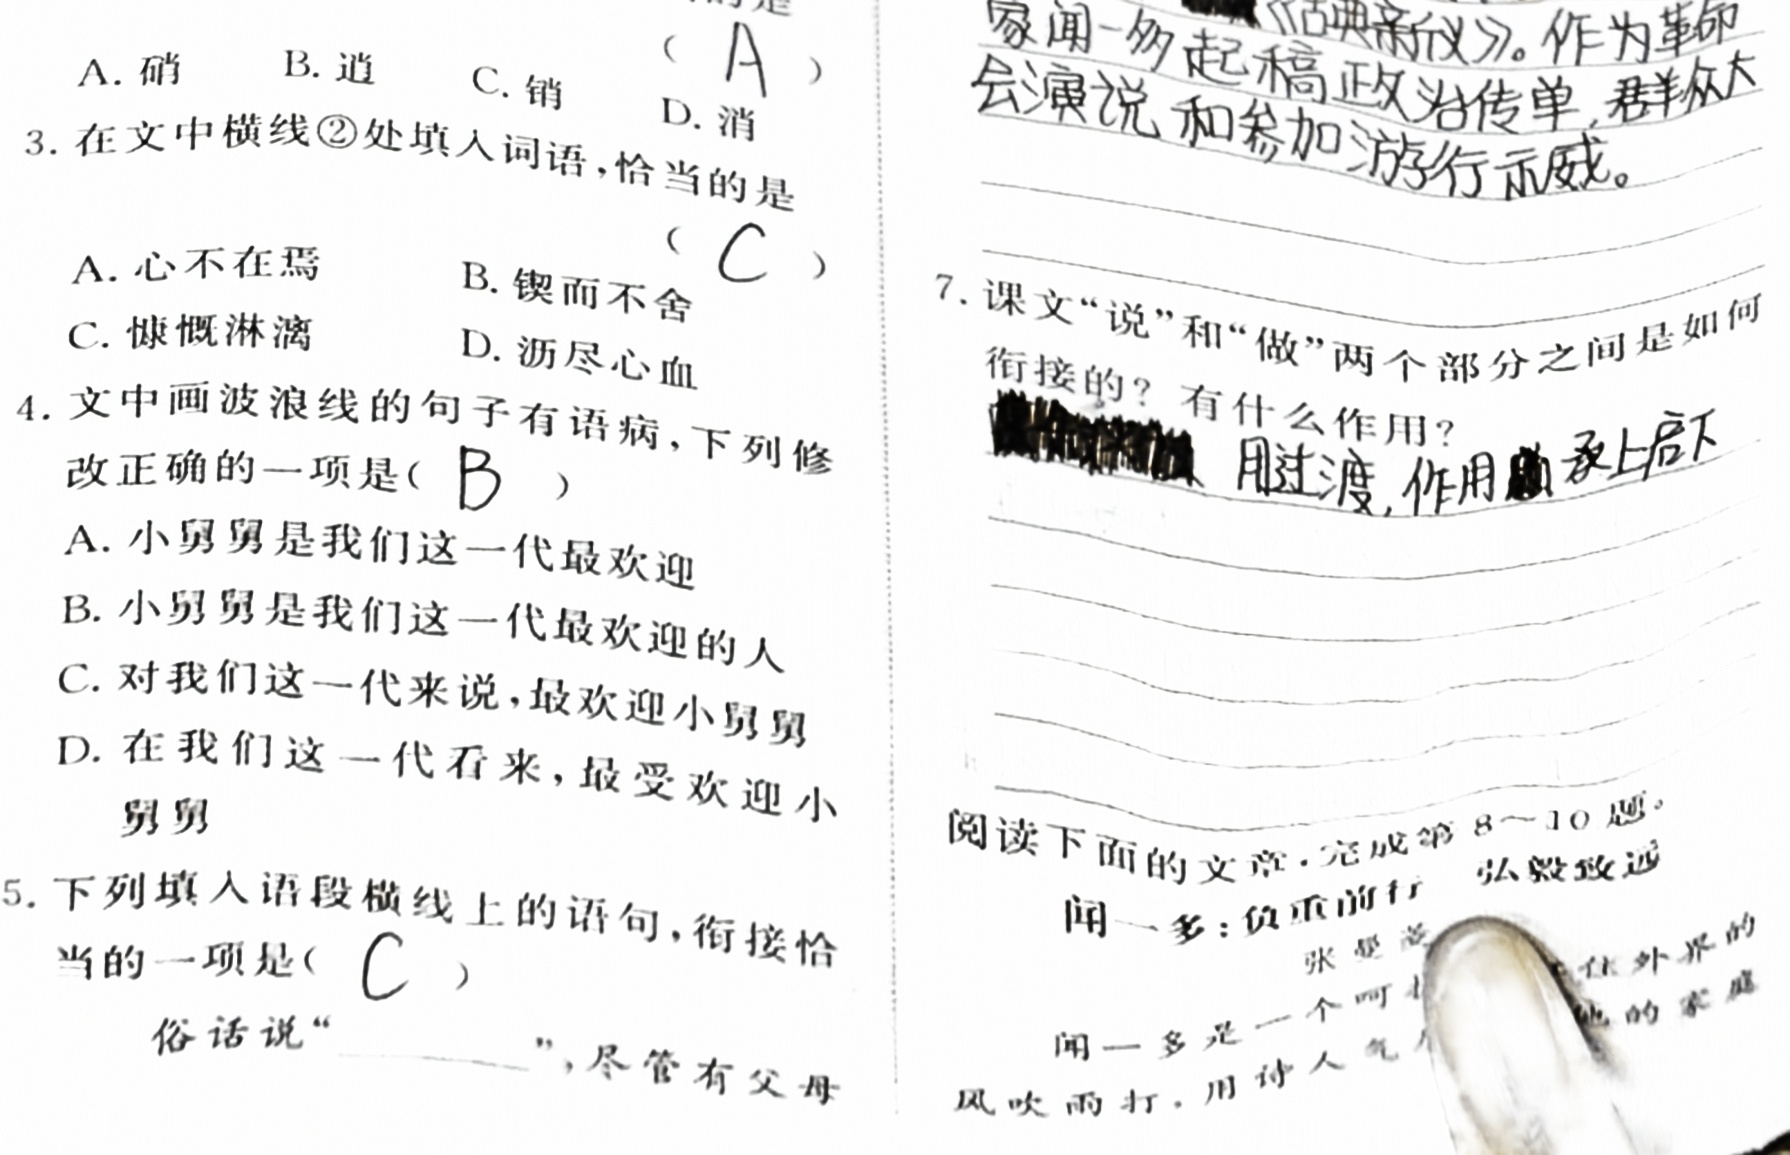 的是
( A )
A. 硝 B. 逍 C. 销 D. 消
3. 在文中横线②处填入词语,恰当的是
( C )
A. 心不在焉 B. 锲而不舍
C. 慷慨淋漓 D. 沥尽心血
4. 文中画波浪线的句子有语病,下列修
改正确的一项是( B )
A. 小舅舅是我们这一代最欢迎
B. 小舅舅是我们这一代最欢迎的人
C. 对我们这一代来说,最欢迎小舅舅
D. 在我们这一代看来,最受欢迎小
舅舅
5. 下列填入语段横线上的语句,衔接恰
当的一项是( C )
俗话说“ ”,尽管有父母
《古典新仪》。作为革命
家闻一多起稿政治传单,群众大
会演说和参加游行示威。
7. 课文“说”和“做”两个部分之间是如何
衔接的?有什么作用?
用过渡,作用 承上启下
阅读下面的文章,完成第8~10题。
闻一多:负重前行 弘毅致远
张曼
闻一多是一个呵 住外界的
风吹雨打,用诗人气 他的家庭